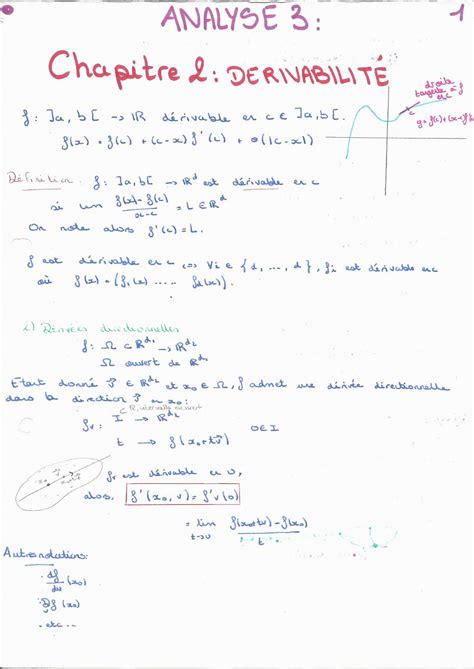 ANALYSE 3 :
1
Chapitre 2 : DERIVABILITÉ
droite
tangente à f
en c
f : ]a, b[ → ℝ dérivable en c ∈ ]a, b[.
f(x) = f(c) + (c-x) f'(c) + o(|c-x|)
Définition : f : ]a, b[ → ℝᵈ est dérivable en c
si lim f(x)-f(c) / x-c = L ∈ ℝᵈ
On note alors f'(c) = L.
f est dérivable en c ⇔ ∀i ∈ {1, ..., d}, fi est dérivable en c
où f(x) = (f₁(x) ..... fd(x)).
2) Dérivées directionnelles
f : Ω ⊂ ℝᵈ¹ → ℝᵈ²
Ω ouvert de ℝᵈ¹
Etant donné v⃗ ∈ ℝᵈ¹ et x₀ ∈ Ω, f admet une dérivée directionnelle
dans la direction v⃗ en x₀ :
⊂ ℝ, intervalle ouvert
fv : I → ℝᵈ² 0 ∈ I
t → f(x₀+tv⃗)
fv est dérivable en 0,
alors f'(x₀, v) = f'v(0)
= lim t→0 f(x₀+tv) - f(x₀) / t
Autres notations :
. df/dv (x₀)
. Df (x₀)
. etc ...